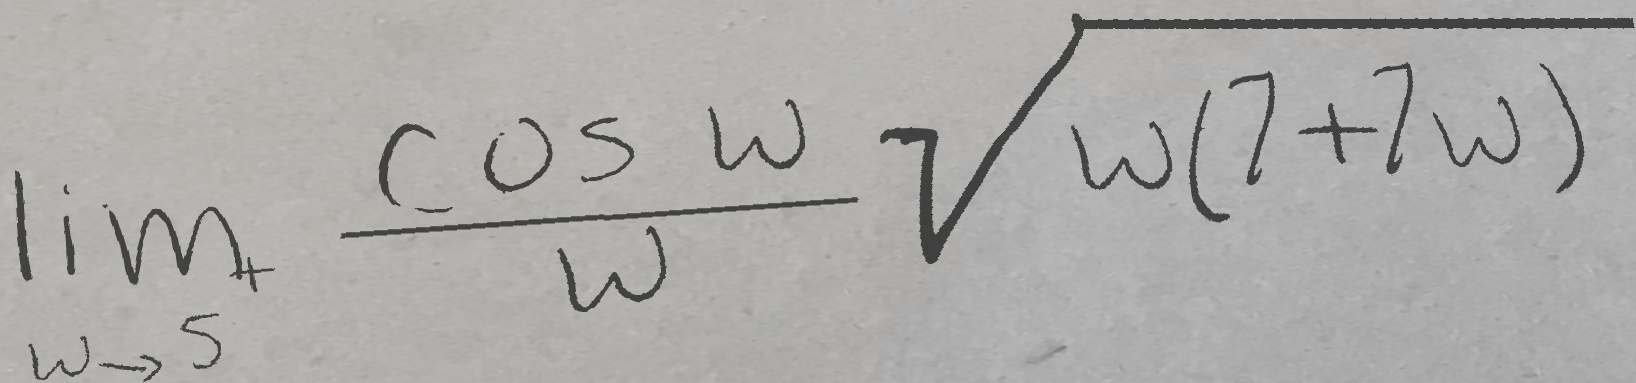 \lim_{w \to 5^+} \frac{\cos w}{w} \sqrt{w(7+7w)}